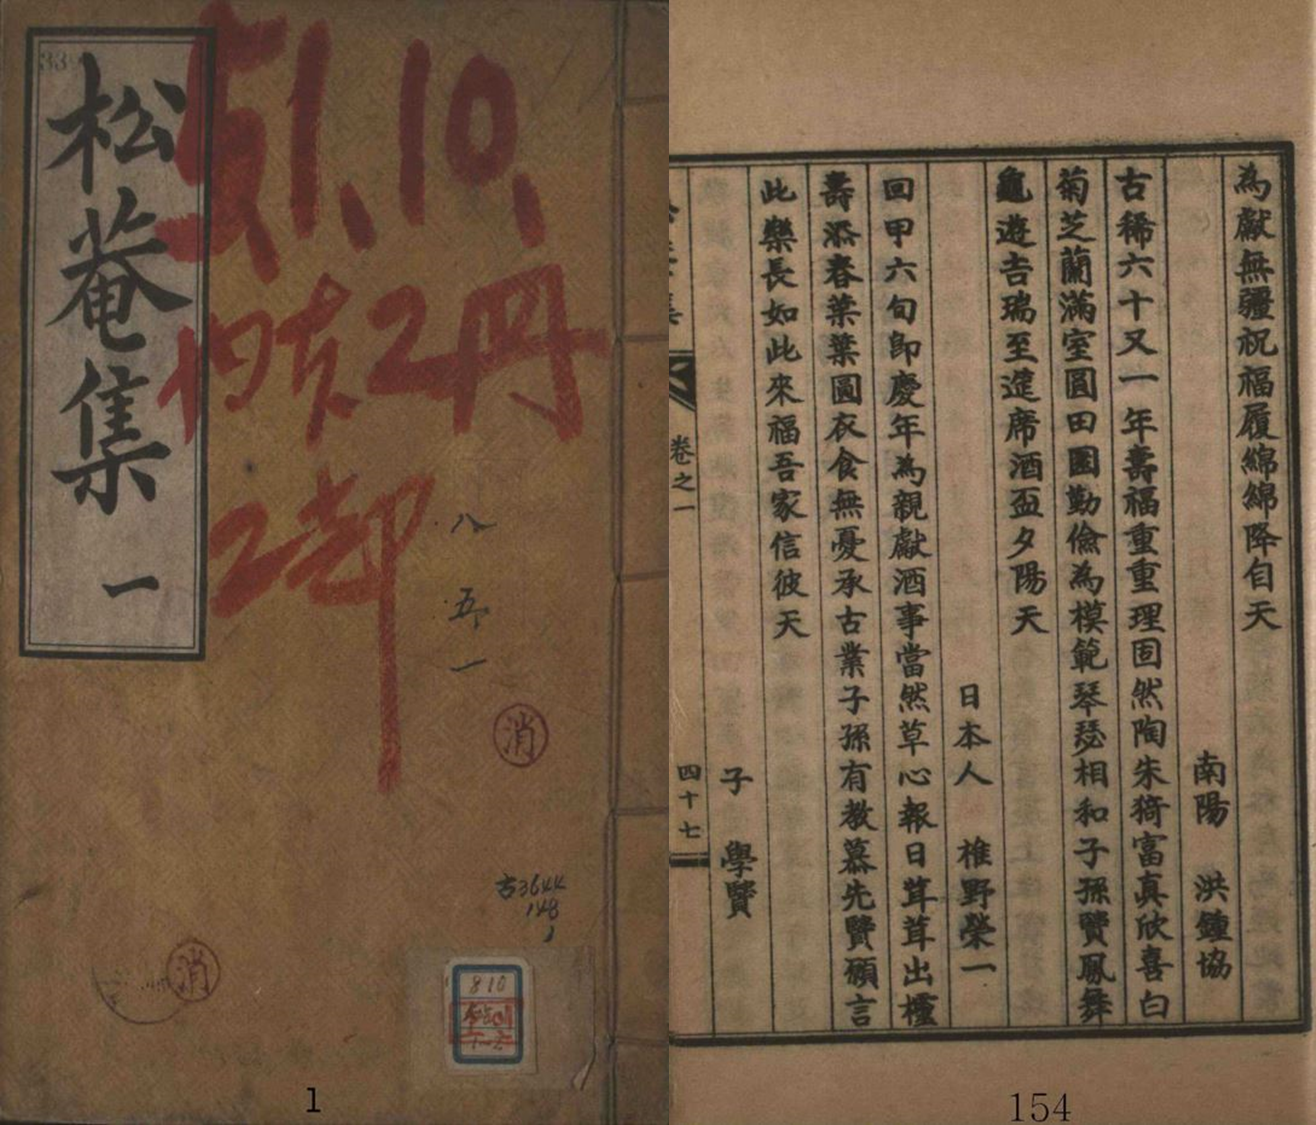 松菴集 一
51.10.
2円
2部
八
五
一
消
消
古3644
148
1
810
1
為獻無疆祝福履綿綿降自天
南陽 洪鍾協
古稀六十又一年壽福重重理固然陶朱猗富真欣喜白
菊芝蘭滿室圓田園勤儉為模範琴瑟相和子孫賢鳳舞
龜遊吉瑞至莚席酒盃夕陽天
日本人 椎野榮一
回甲六旬卽慶年為親獻酒事當然草心報日茸茸出櫮
壽添春葉葉圓衣食無憂承古業子孫有教慕先賢願言
此樂長如此來福吾家信彼天
子 學賢
卷之一
四十七
154